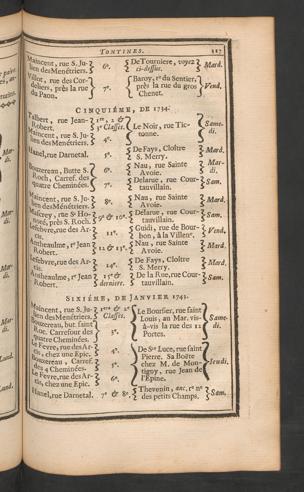 TONTINES. 227
Maincent, rue S. Julien des Ménétriers. 6e. DeTourniere, voyez ci-dessus. Mard.
Villot, rue des Cordeliers, près la rue du Paon. 7e. Baroy, re du Sentier, près la rue du gros Chenet. Vend.
CINQUIÉME, DE 1734.
Talbert, rue Jean-Robert. 1re, 2 & 3e Classes. Le Noir, rue Tictonne. Samedi.
Maincent, rue S. Julien des Ménétriers. 4e.
Hanel, rue Darnetal. 5e. De Fays, Cloître S. Merry. Mard.
Bouzereau, Butte S. Roch, Carref. des quatre Cheminées. 6e. Nau, rue Sainte Avoie. Mardi.
7e. Delarue, rue Courtauvillain. Sam.
Maincent, rue S. Julien des Ménétriers. 8e. Nau, rue Sainte Avoie. Mard.
rue St Honoré, près S. Roch. 9e & 10e. Delarue, rue Courtauvillain. Sam.
Lefebvre, rue des Arcis. 11e. Guidi, rue de Bourbon, à la Villene. Vend.
Antheaulme, re Jean Robert. 12 & 13e. Nau, rue Sainte Avoie. Mard.
Lefebvre, rue des Arcis. 14e. De Fays, Cloître S. Merry. Mard.
Antheaulme, re Jean Robert. 15e & derniere. De la Rue, rue Courtauvillain. Sam.
SIXIÉME, DE JANVIER 1743.
Maincent, rue S. Julien des Ménétriers. 1re & 2e Classes. Le Boursier, rue saint Louis, au Mar. vis-à-vis la rue des 12 Portes. Samedi.
Bouzereau, but. saint Roc. Carrefour des quatre Cheminées. 3e.
Le Fevre, rue des Arcis, chez une Epic. 4e. De Ste Luce, rue saint Pierre. Sa Boëte chez M. de Montigny, rue Jean de l'Epine. Jeudi.
Bouzereau, Carref. des 4 Cheminées. 5e.
Le Fevre, rue des Arcis, chez une Epic. 6e.
Hanel, rue Darnetal. 7e & 8e. Thevenin, anc. re ne des petits Champs. Sam.